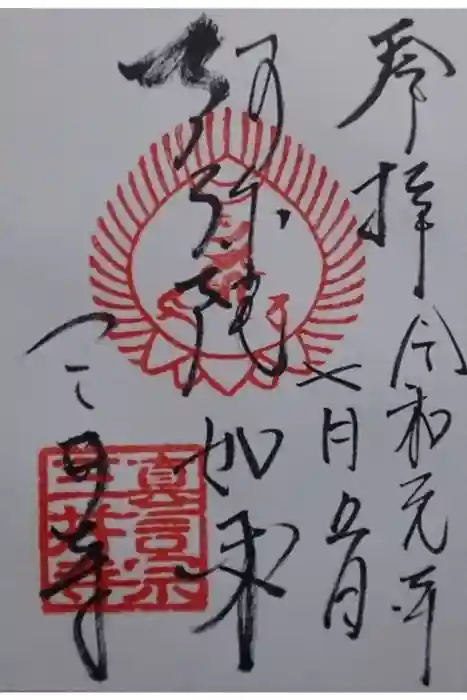 奉拝 令和元年
七月五日
阿弥陀如来
真言宗
三井寺